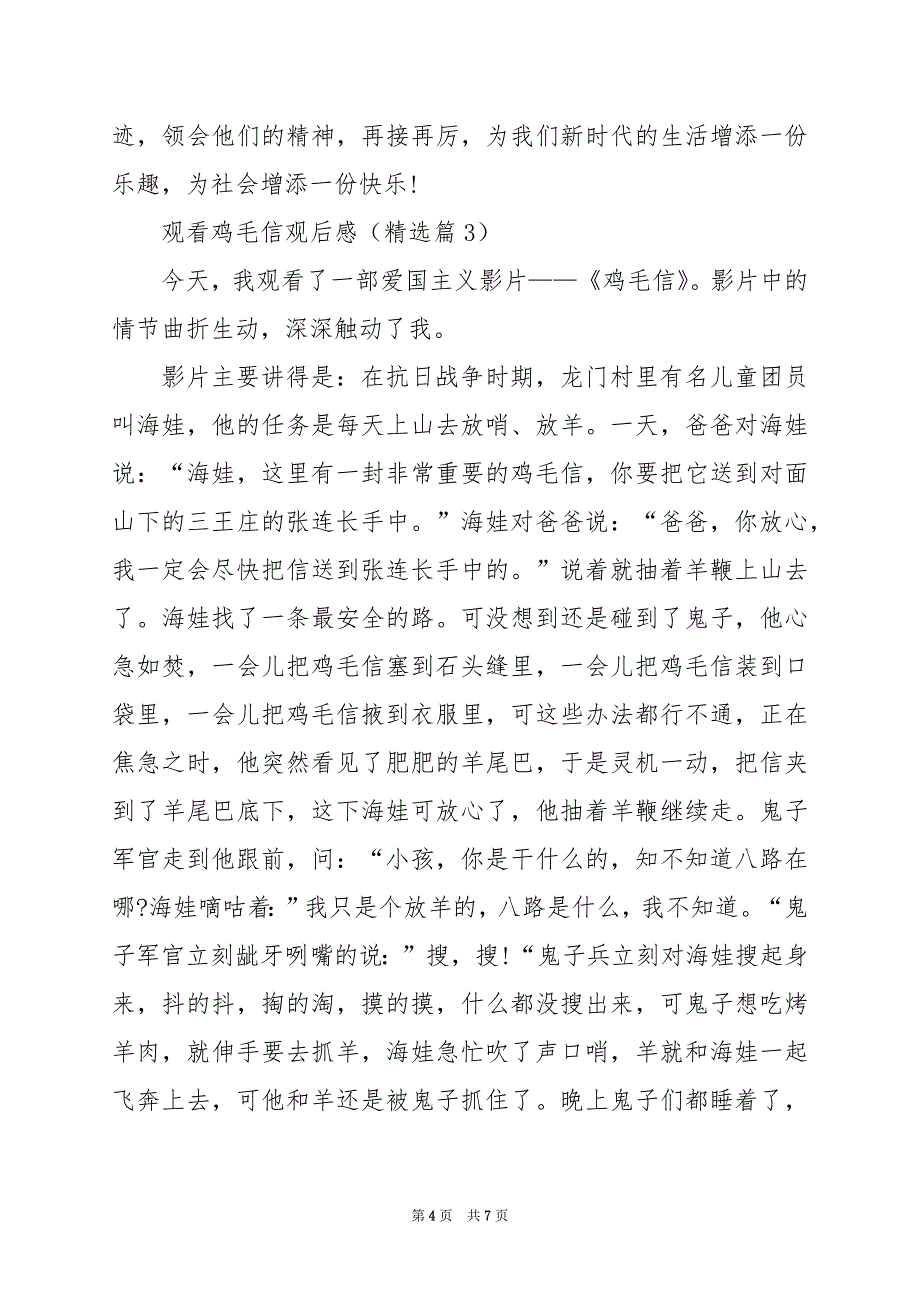 迹，领会他们的精神，再接再厉，为我们新时代的生活增添一份
乐趣，为社会增添一份快乐!
观看鸡毛信观后感（精选篇3）
今天，我观看了一部爱国主义影片——《鸡毛信》。影片中的
情节曲折生动，深深触动了我。
影片主要讲得是：在抗日战争时期，龙门村里有名儿童团员
叫海娃，他的任务是每天上山去放哨、放羊。一天，爸爸对海娃
说：“海娃，这里有一封非常重要的鸡毛信，你要把它送到对面
山下的三王庄的张连长手中。”海娃对爸爸说：“爸爸，你放心，
我一定会尽快把信送到张连长手中的。”说着就抽着羊鞭上山去
了。海娃找了一条最安全的路。可没想到还是碰到了鬼子，他心
急如焚，一会儿把鸡毛信塞到石头缝里，一会儿把鸡毛信装到口
袋里，一会儿把鸡毛信掖到衣服里，可这些办法都行不通，正在
焦急之时，他突然看见了肥肥的羊尾巴，于是灵机一动，把信夹
到了羊尾巴底下，这下海娃可放心了，他抽着羊鞭继续走。鬼子
军官走到他跟前，问：“小孩，你是干什么的，知不知道八路在
哪?海娃嘀咕着：”我只是个放羊的，八路是什么，我不知道。“鬼
子军官立刻龇牙咧嘴的说：”搜，搜!“鬼子兵立刻对海娃搜起身
来，抖的抖，掏的淘，摸的摸，什么都没搜出来，可鬼子想吃烤
羊肉，就伸手要去抓羊，海娃急忙吹了声口哨，羊就和海娃一起
飞奔上去，可他和羊还是被鬼子抓住了。晚上鬼子们都睡着了，
第 4 页 共 7 页